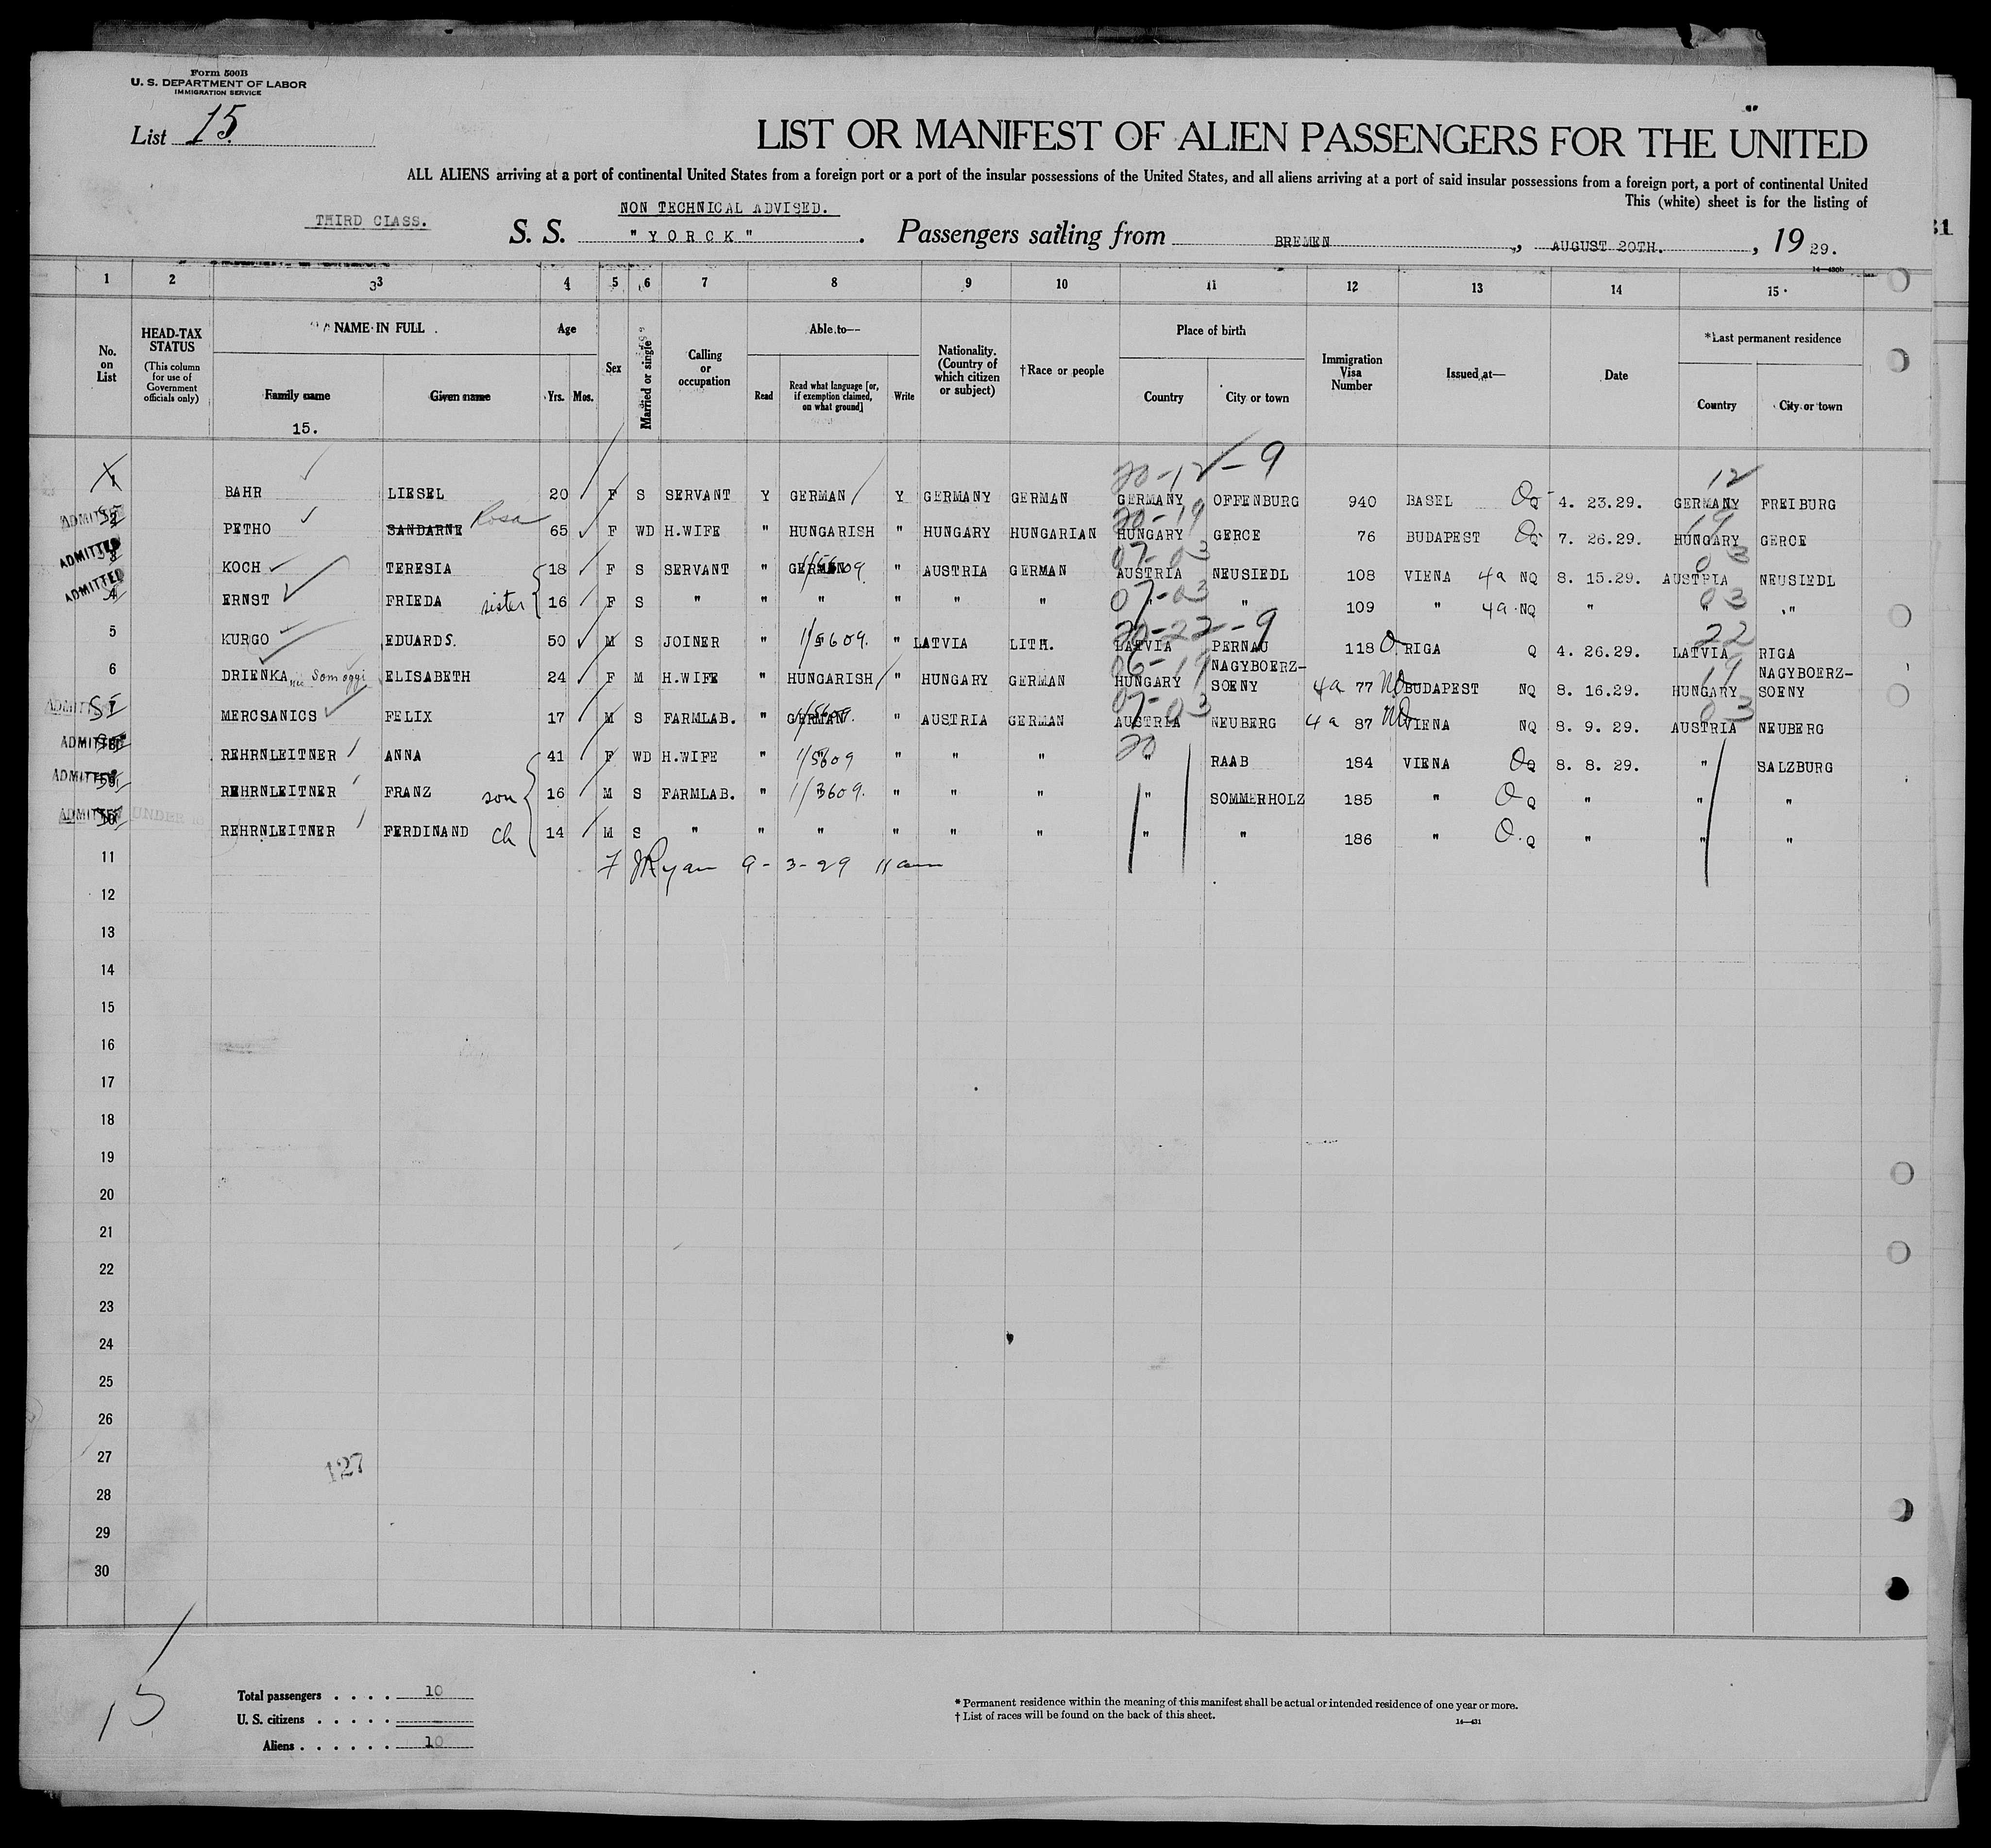 Form 500B
U. S. DEPARTMENT OF LABOR
IMMIGRATION SERVICE
List 15.
LIST OR MANIFEST OF ALIEN PASSENGERS FOR THE UNITED
ALL ALIENS arriving at a port of continental United States from a foreign port or a port of the insular possessions of the United States, and all aliens arriving at a port of said insular possessions from a foreign port, a port of continental United
This (white) sheet is for the listing of
NON TECHNICAL ADVISED.
THIRD CLASS. S. S. "YORCK". Passengers sailing from BREMEN, AUGUST 20TH., 19 29.
14—430b
1 2 3 4 5 6 7 8 9 10 11 12 13 14 15
No. on List
HEAD-TAX STATUS
(This column for use of Government officials only)
NAME IN FULL
Family name Given name
15.
Age
Yrs. Mos.
Sex
Married or single
Calling or occupation
Able to—
Read
Read what language [or, if exemption claimed, on what ground]
Write
Nationality. (Country of which citizen or subject)
†Race or people
Place of birth
Country City or town
Immigration Visa Number
Issued at—
Date
*Last permanent residence
Country City or town
20-12-9 12
1 BAHR LIESEL 20 F S SERVANT Y GERMAN Y GERMANY GERMAN GERMANY OFFENBURG 940 BASEL Q 4. 23.29. GERMANY FREIBURG
20-19 19
ADMITTED 2 PETHO SANDARNE Rosa 65 F WD H.WIFE " HUNGARISH " HUNGARY HUNGARIAN HUNGARY GERCE 76 BUDAPEST Q 7. 26.29. HUNGARY GERCE
07-03 03
ADMITTED KOCH TERESIA 18 F S SERVANT " GERMAN " AUSTRIA GERMAN AUSTRIA NEUSIEDL 108 VIENA 4a NQ 8. 15.29. AUSTRIA NEUSIEDL
07-03 03
ADMITTED 4 ERNST FRIEDA sister 16 F S " " " " " " " " 109 " 4a NQ " " "
20-22-9 22
5 KURGO EDUARDS. 50 M S JOINER " 1/5609. " LATVIA LITH. LATVIA PERNAU 118 RIGA Q 4. 26.29. LATVIA RIGA
06-19 19
6 DRIENKA nee Somogyi ELISABETH 24 F M H.WIFE " HUNGARISH " HUNGARY GERMAN HUNGARY NAGYBOERZ-SOENY 4a 77 BUDAPEST NQ 8. 16.29. HUNGARY NAGYBOERZ-SOENY
07-03 03
ADMITTED SI MERCSANICS FELIX 17 M S FARMLAB. " GERMAN " AUSTRIA GERMAN AUSTRIA NEUBERG 4a 87 VIENA NQ 8. 9. 29. AUSTRIA NEUBERG
20
ADMITTED REHRNLEITNER ANNA 41 F WD H.WIFE " 1/5609 " " " " RAAB 184 VIENA Q 8. 8. 29. " SALZBURG
ADMITTED REHRNLEITNER FRANZ son 16 M S FARMLAB. " 1/3609. " " " " SOMMERHOLZ 185 " Q " " "
ADMITTED UNDER REHRNLEITNER FERDINAND ch 14 M S " " " " " " " " 186 " Q " " "
11 F J Ryan 9-3-29 11am
12
13
14
15
16
17
18
19
20
21
22
23
24
25
26
27
127
28
29
30
15
Total passengers . . . . 10
U. S. citizens . . . . . –
Aliens . . . . . . 10
* Permanent residence within the meaning of this manifest shall be actual or intended residence of one year or more.
† List of races will be found on the back of this sheet.
14—431